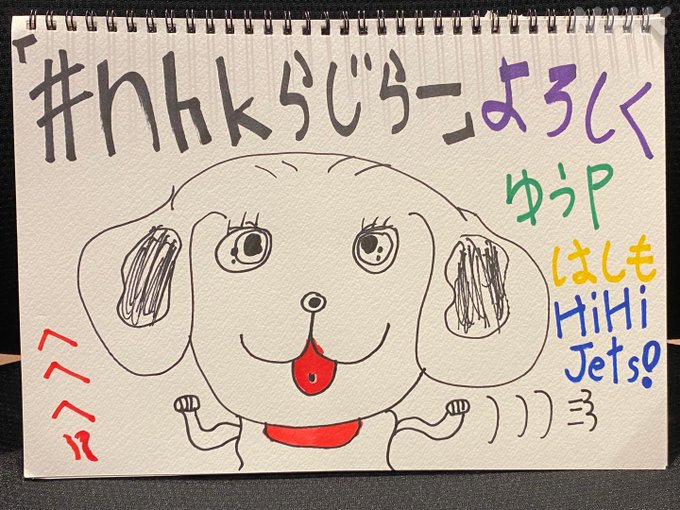 「#nhkらじらー」よろしく
ゆうP
はしも
HiHi
Jets!
へへへ